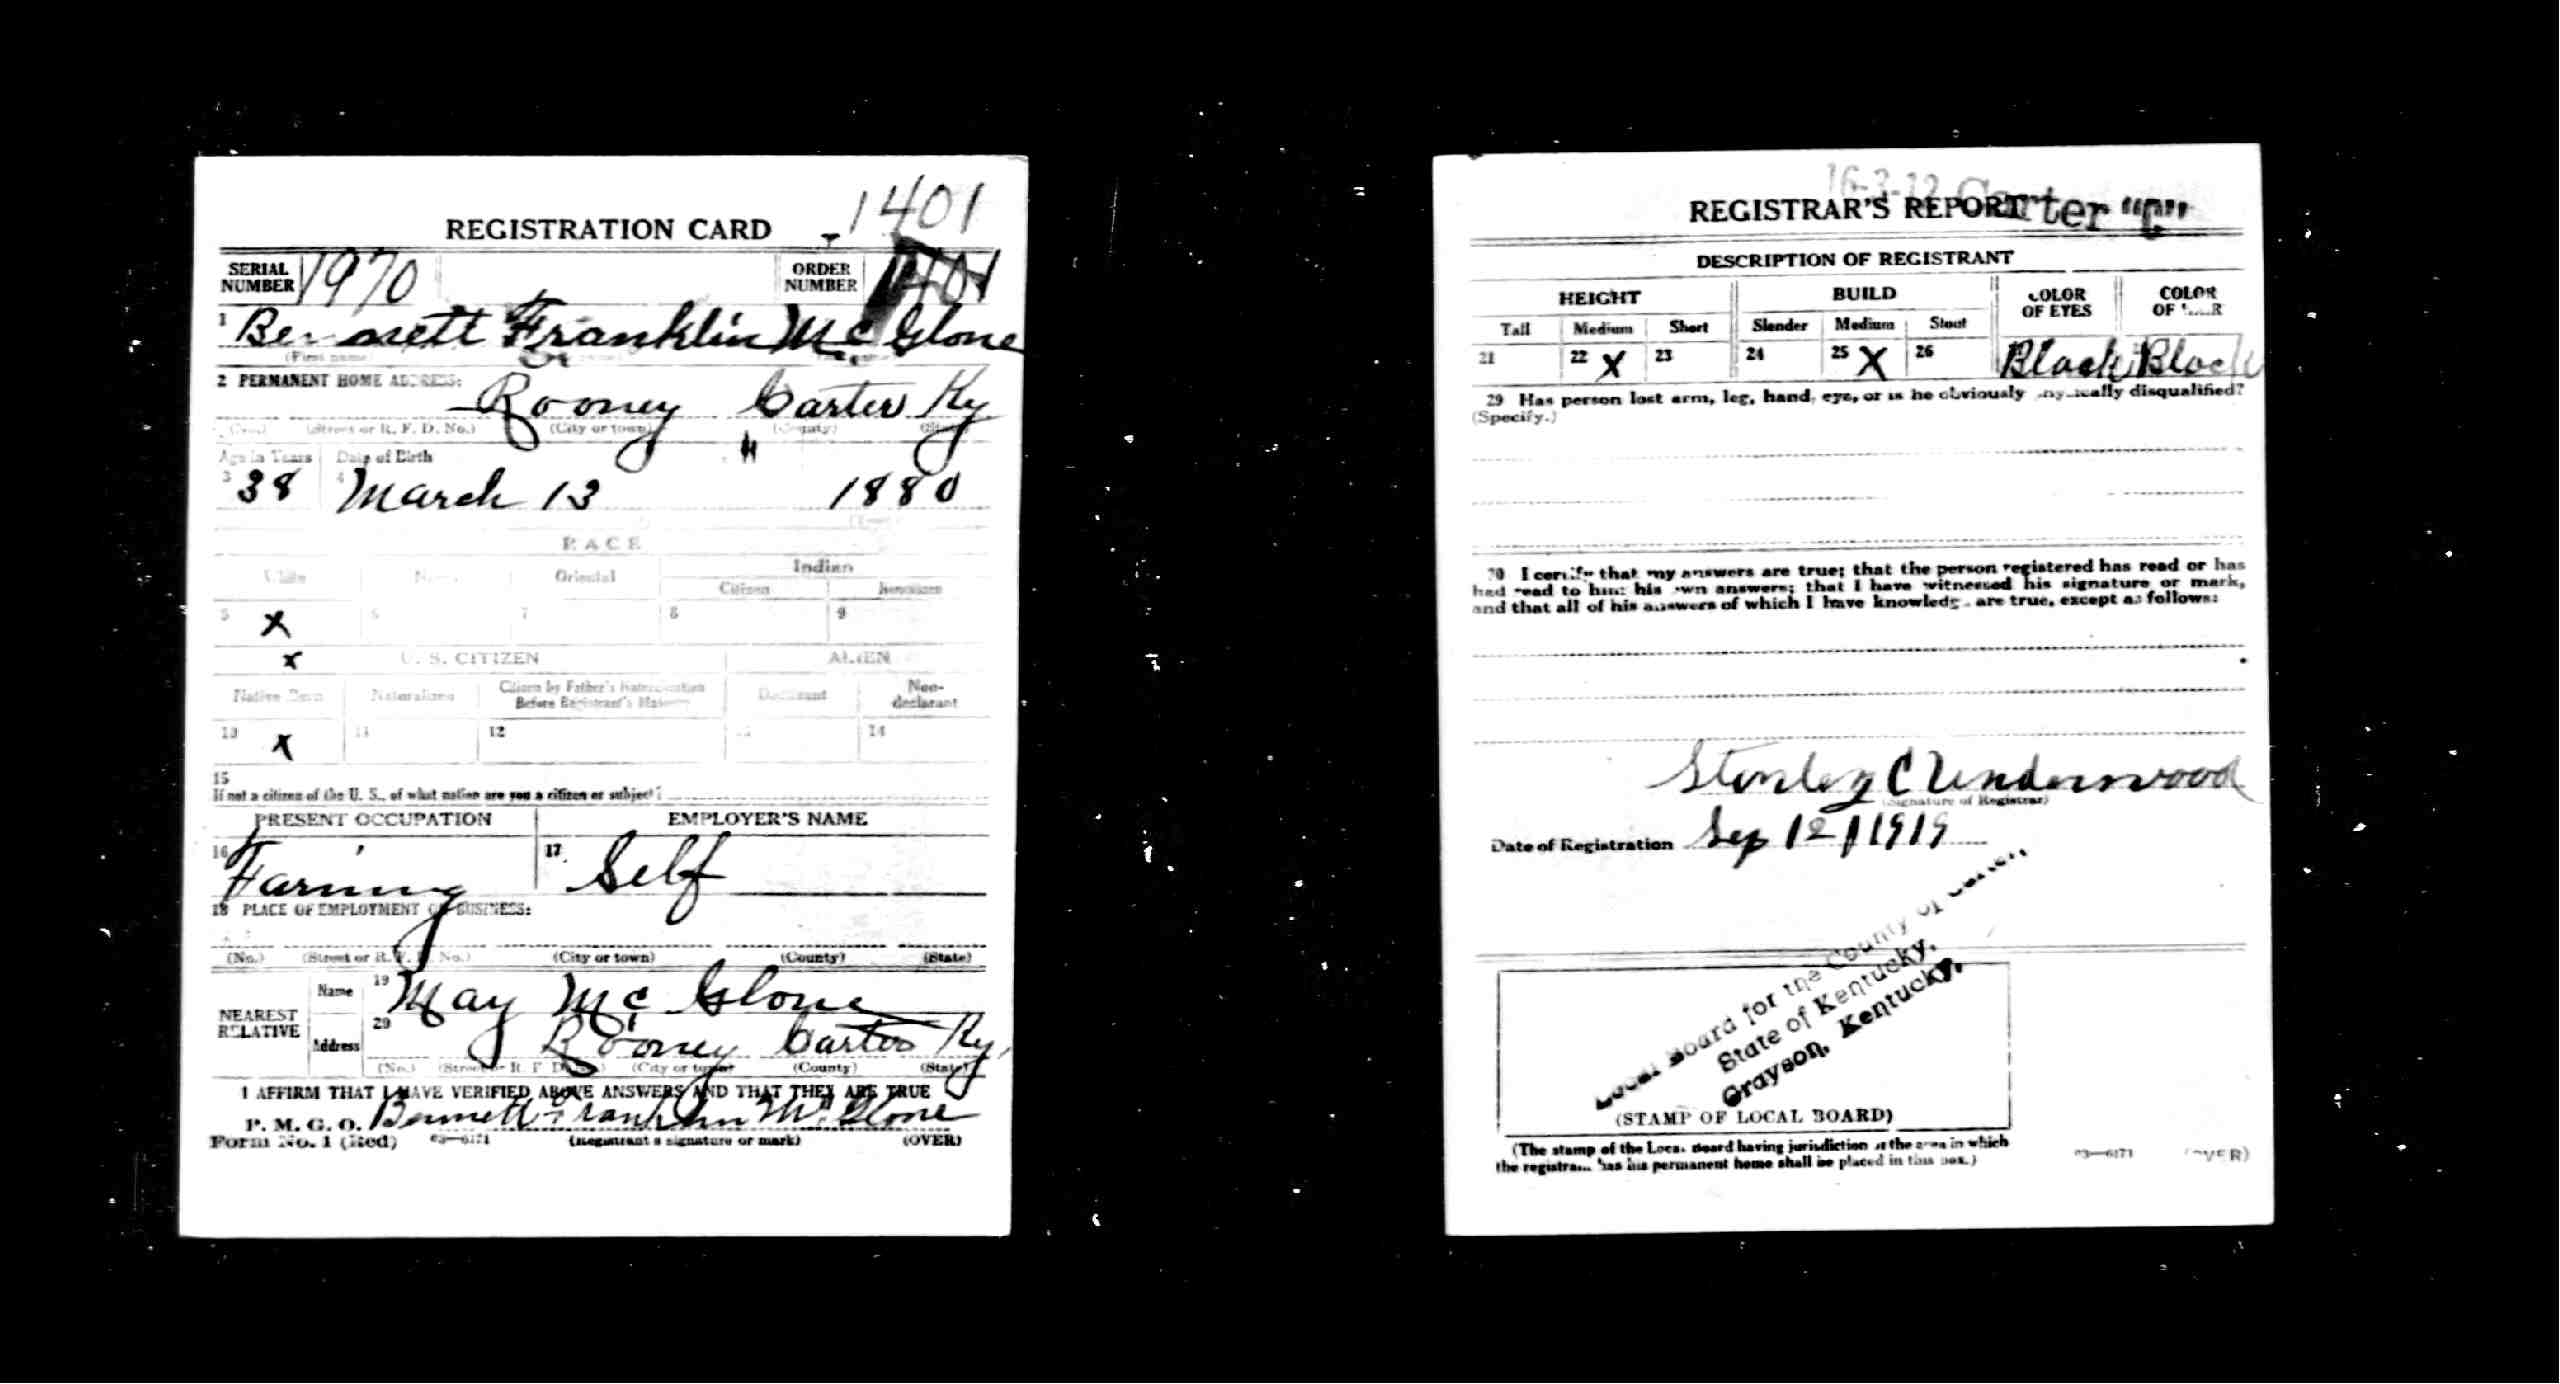 1401
REGISTRATION CARD
SERIAL NUMBER 1970 ORDER NUMBER 1401
1 Bennett Franklin McGlone
(First name)
2 PERMANENT HOME ADDRESS:
Rooney Carter Ky
(Street or R. F. D. No.) (City or town) (County) (State)
Age in Years Date of Birth
3 38 4 March 13 1880
RACE
White Oriental Indian
Citizen
5 X 6 7 8 9
X U. S. CITIZEN ALIEN
Native Born Naturalized Citizen by Father's Naturalization Before Registrant's Majority Declarant Non-declarant
10 X 11 12 14
15
If not a citizen of the U. S., of what nation are you a citizen or subject?
PRESENT OCCUPATION EMPLOYER'S NAME
16 Farming 17 Self
18 PLACE OF EMPLOYMENT OR BUSINESS:
(No.) (Street or R. F. D. No.) (City or town) (County) (State)
NEAREST RELATIVE Name 19 May McGlone
Address 20 Rooney Carter Ky,
(No.) (Street or R. F. D. No.) (City or town) (County) (State)
I AFFIRM THAT I HAVE VERIFIED ABOVE ANSWERS AND THAT THEY ARE TRUE
P. M. G. O. Bennett Franklin McGlone
Form No. 1 (Red) 03—6171 (Registrant's signature or mark) (OVER)
16-3-12 Carter "C"
REGISTRAR'S REPORT
DESCRIPTION OF REGISTRANT
HEIGHT BUILD COLOR OF EYES COLOR OF HAIR
Tall Medium Short Slender Medium Stout
21 22 X 23 24 25 X 26 Black Black
29 Has person lost arm, leg, hand, eye, or is he obviously physically disqualified?
(Specify.)
30 I certify that my answers are true; that the person registered has read or has
had read to him his own answers; that I have witnessed his signature or mark,
and that all of his answers of which I have knowledge are true, except as follows:
Stonley C Underwood
(Signature of Registrar)
Date of Registration Sep 12 1919
Local Board for the County of Carter,
State of Kentucky,
Grayson, Kentucky.
(STAMP OF LOCAL BOARD)
(The stamp of the Local Board having jurisdiction of the area in which
the registrant has his permanent home shall be placed in this box.)
03—6171 (OVER)